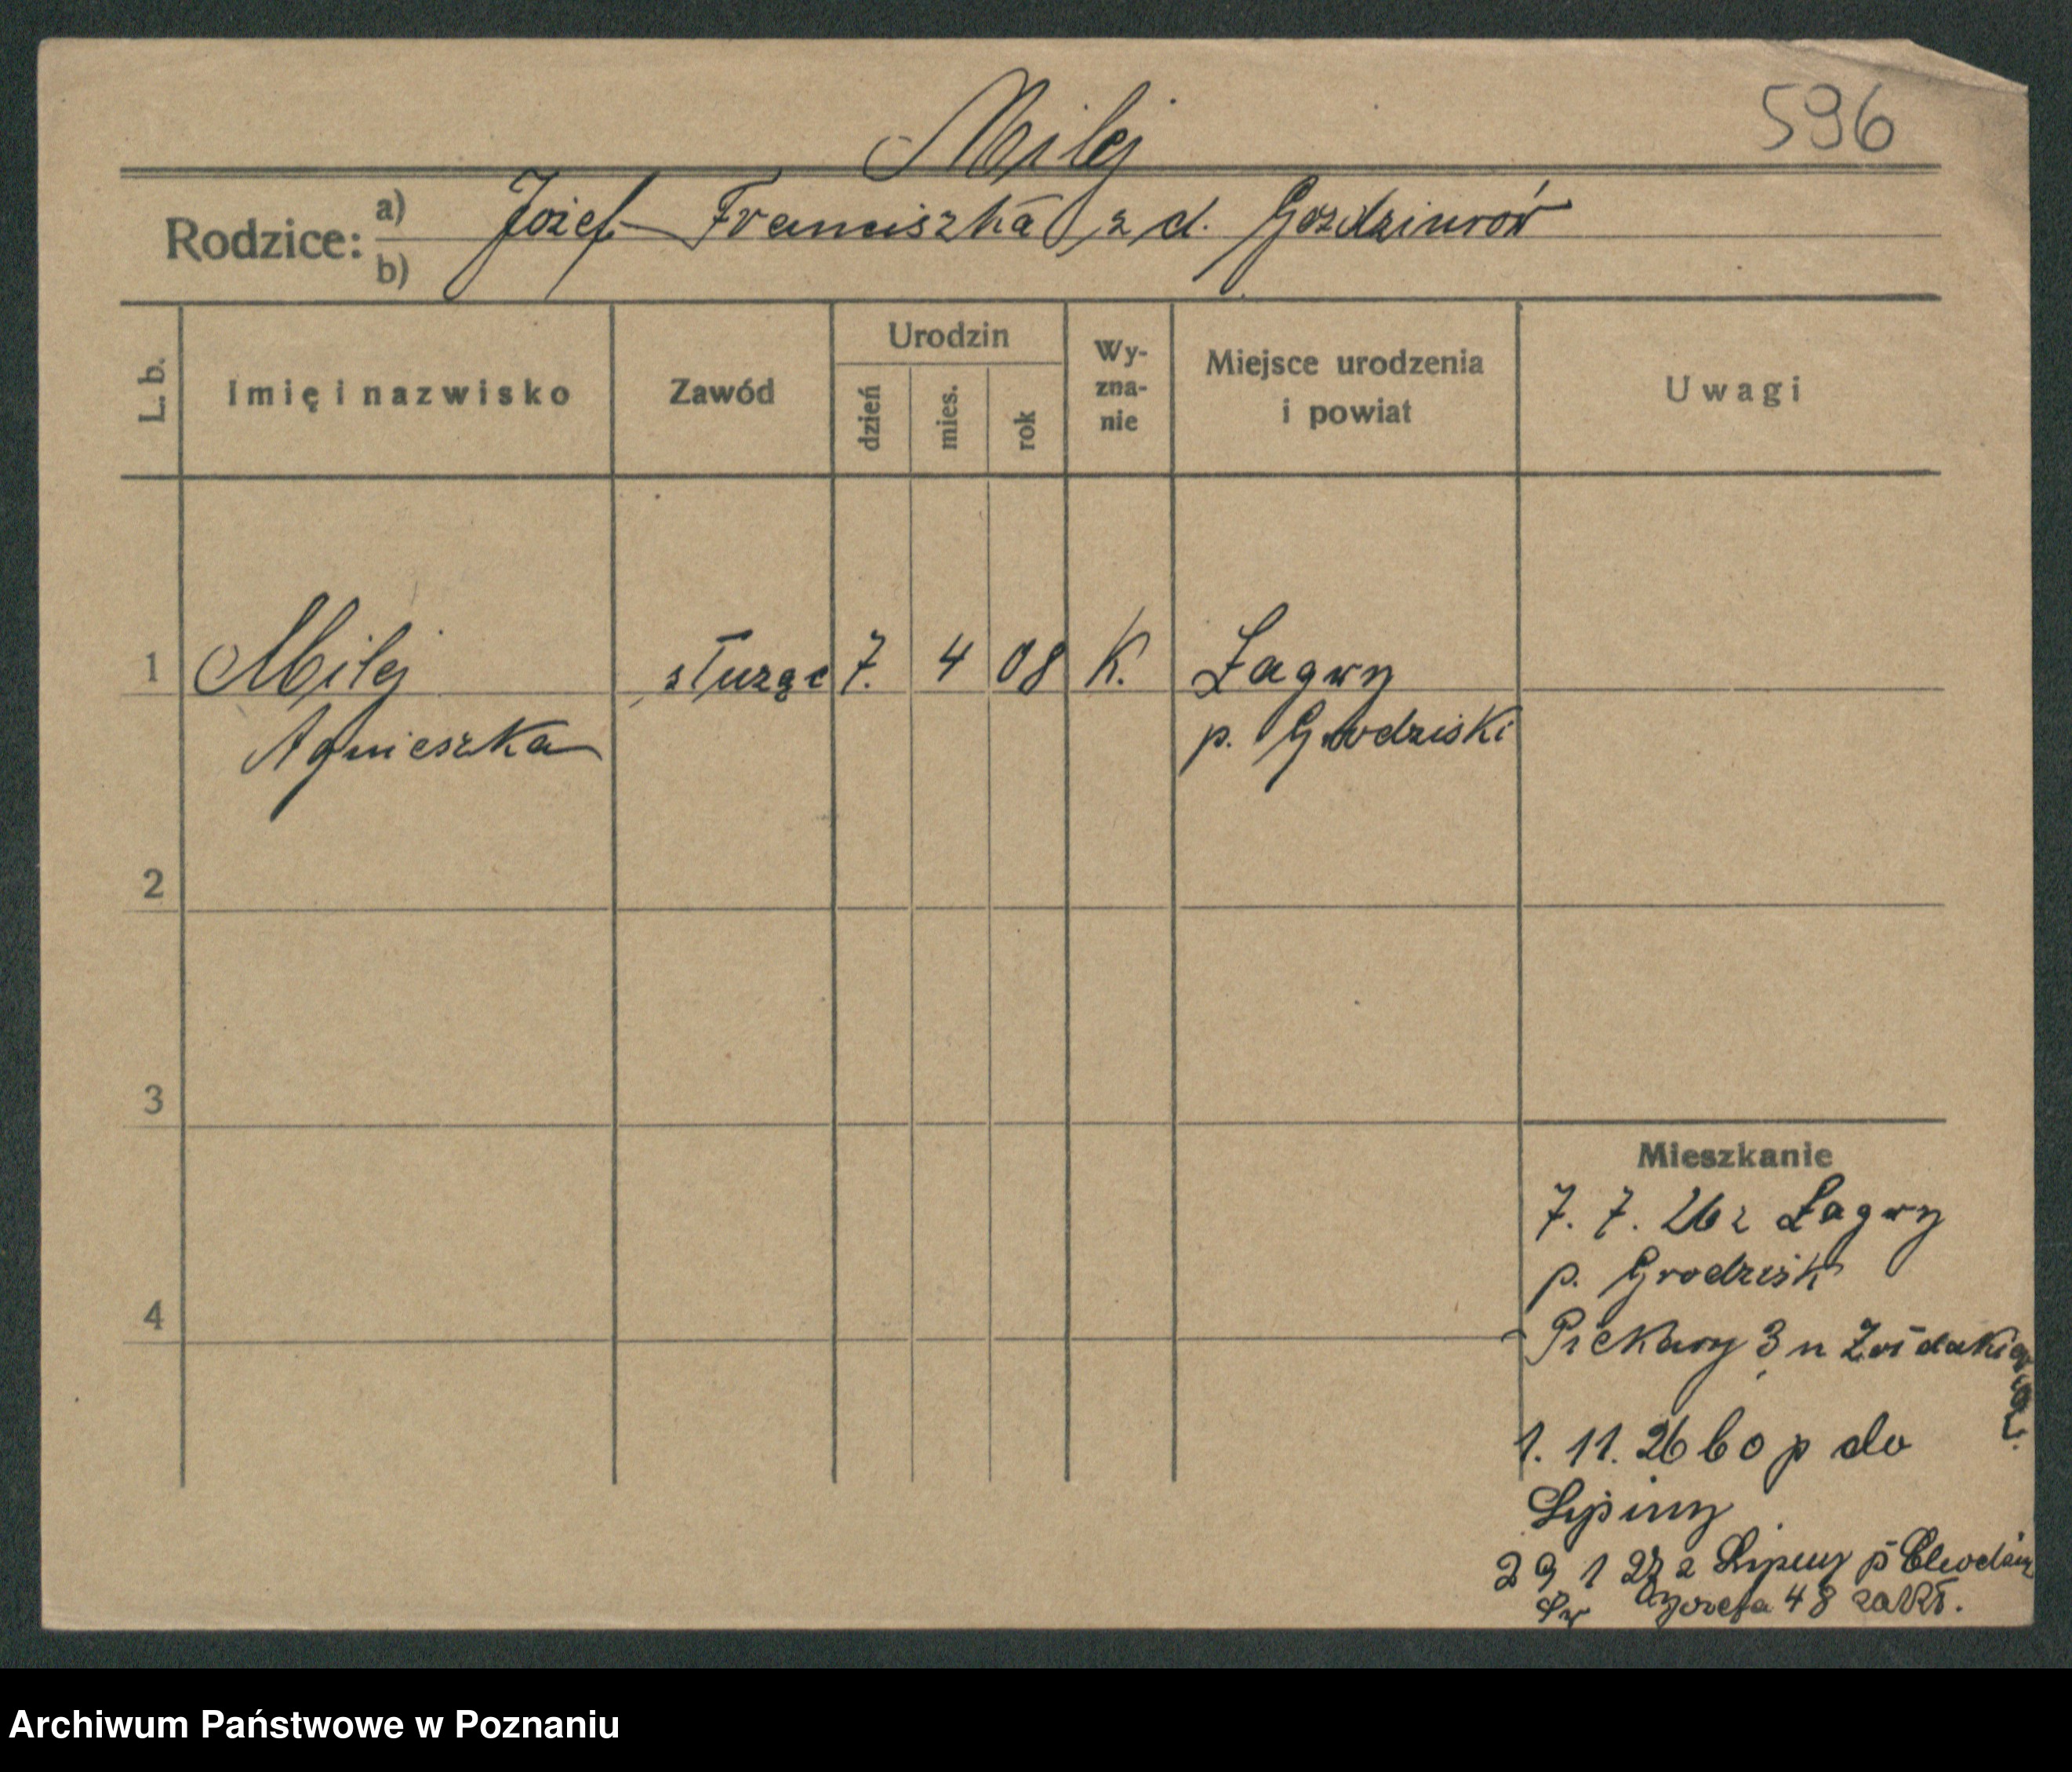 596
Milej
Rodzice: a) Józef Franciszka z d. Gozdziurów
b)
L. b.
Imię i nazwisko
Zawód
Urodzin
dzień
mies.
rok
Wy-
zna-
nie
Miejsce urodzenia
i powiat
Uwagi
1 Milej służąc 7. 4 08 K. Łagwy
Agnieszka p. Grodziski
2
3
4
Mieszkanie
7. 7. 26 z Łagwy
p. Grodzisk
Piekary 3 u
1. 11. 26 b o p do
Lipiny
29 1 27 z Lipiny p
Św Józefa 48 zakł.
Archiwum Państwowe w Poznaniu